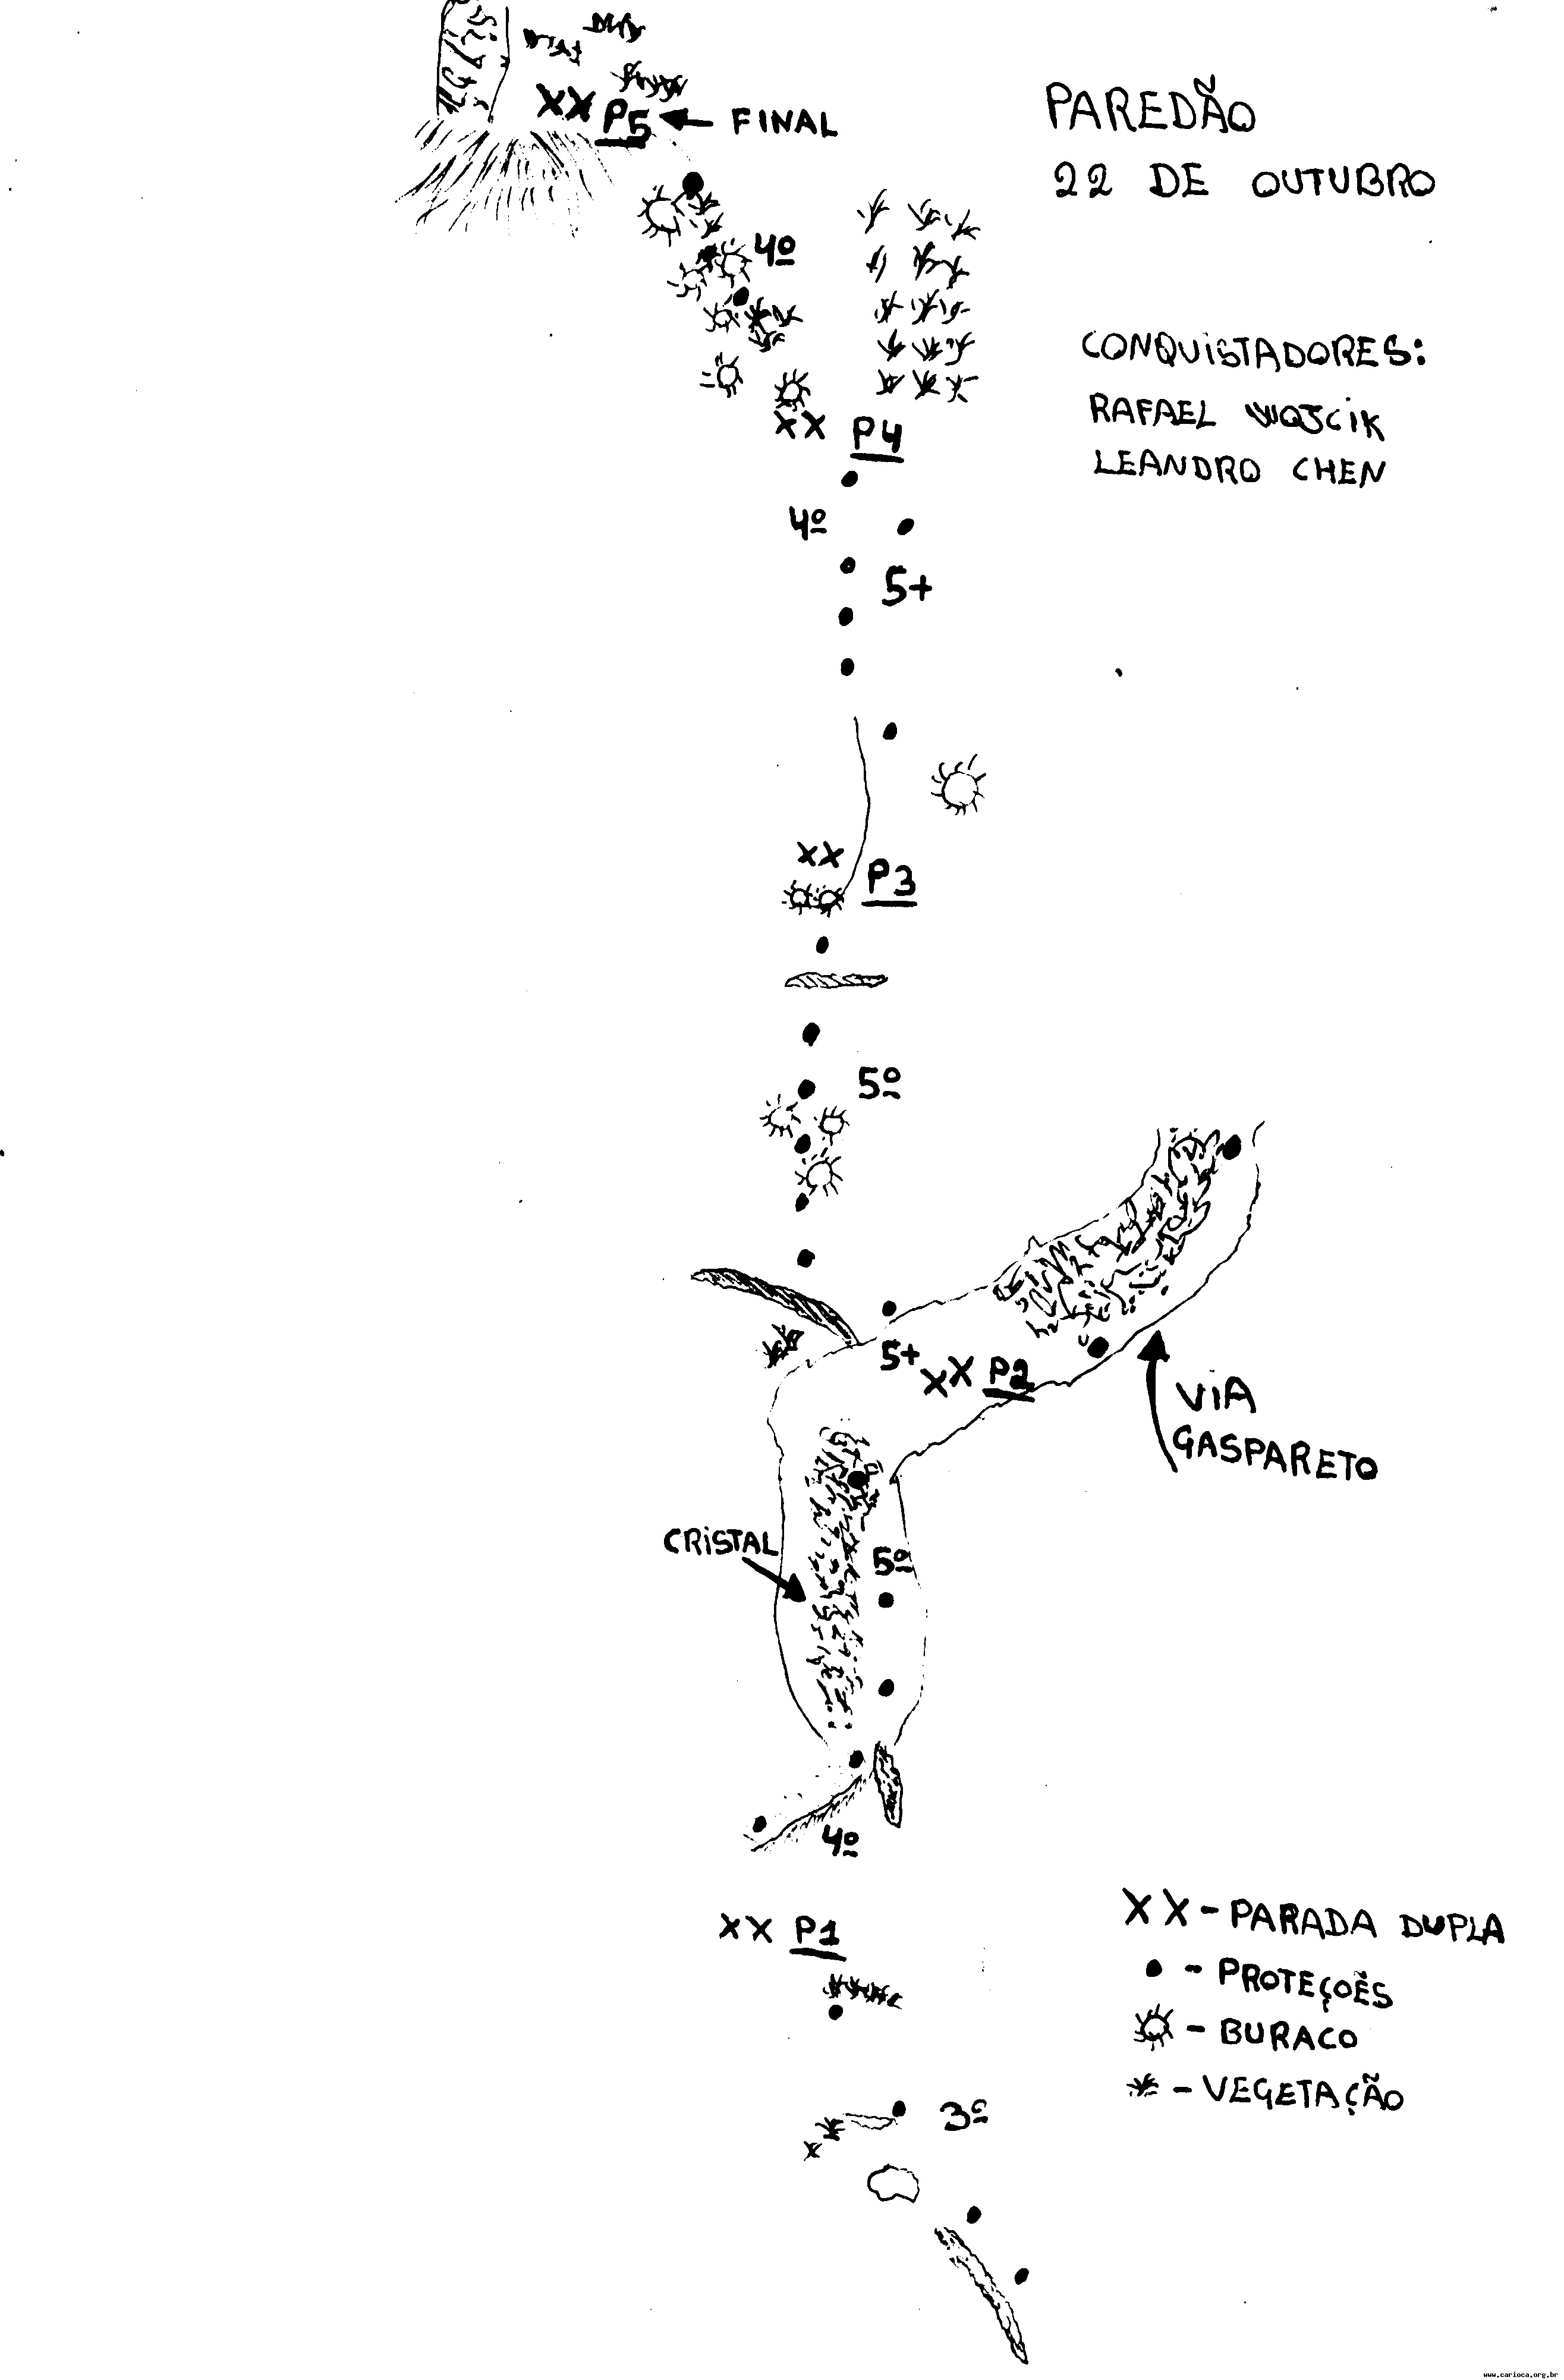 PAREDÃO
22 DE OUTUBRO
CONQUISTADORES:
RAFAEL WOJCIK
LEANDRO CHEN
XX P5 FINAL
4º
XX P4
4º
5+
XX
P3
5º
5+ XX P2
VIA
GASPARETO
CRISTAL
5º
4º
XX P1
3º
XX - PARADA DUPLA
- PROTEÇOẼS
- BURACO
- VEGETAÇÃO
www.carioca.org.br